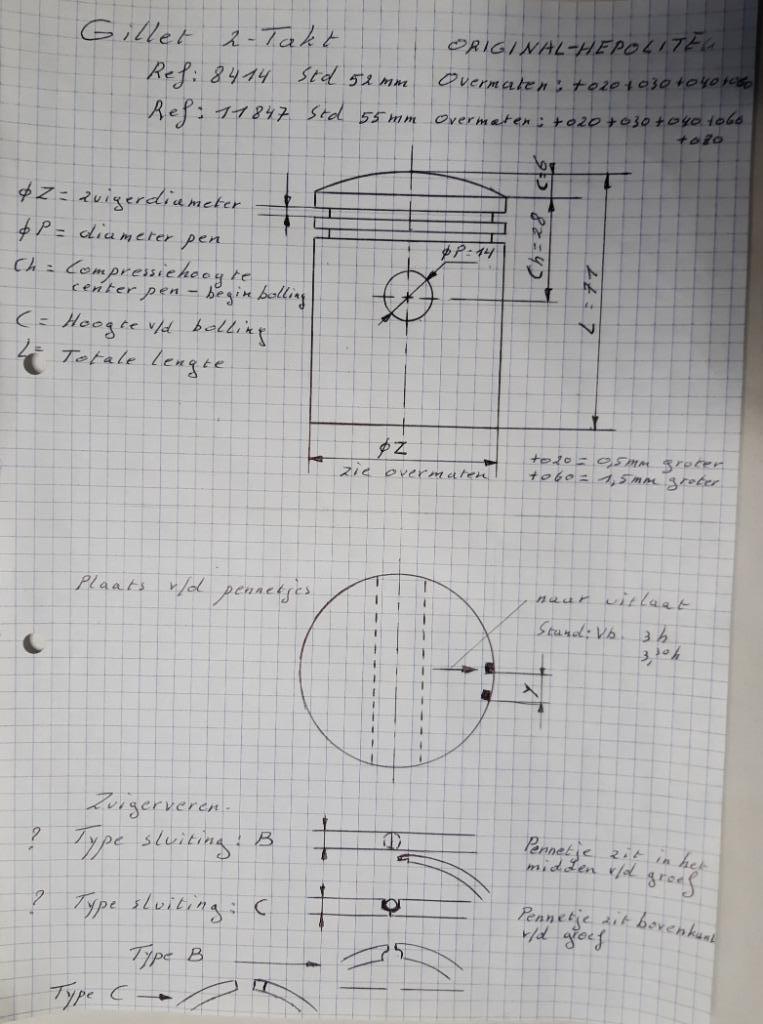 Gillet 2-Takt
ORIGINAL-HEPOLITE
Ref: 8414 Std 52mm Overmaten: +020 +030 +040 +060
Ref: 11847 Std 55mm Overmaten: +020 +030 +040 +060
+080
ϕZ = zuigerdiameter
ϕP = diameter pen
Ch = Compressiehoogte
center pen - begin bolling
C = Hoogte v/d bolling
L = Totale lengte
C=6
Ch = 28
L = 71
ϕP=14
ϕZ
zie overmaten
+020 = 0,5mm groter
+060 = 1,5mm groter
Plaats v/d pennetjes
naar uitlaat
Stand: Vb. 3h
3,30h
Y
Zuigerveren.
? Type sluiting: B
Pennetje zit in het
midden v/d groef
? Type sluiting: C
Pennetje zit bovenkant
v/d groef
Type B
Type C